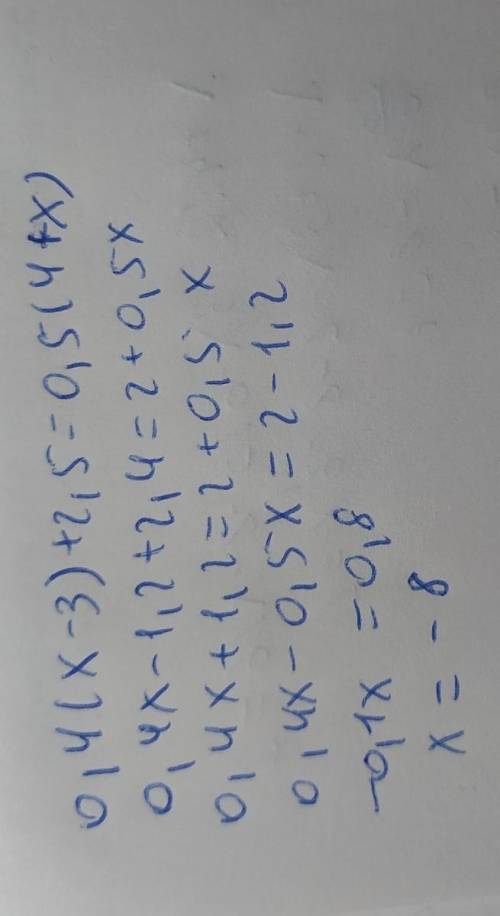 0,4(x-3)+2,5=0,5(4+x)
0,4x-1,2+2,4=2+0,5x
0,4x+1,2=2+0,5x
0,4x-0,5x=2-1,2
-0,1x=0,8
x=-8